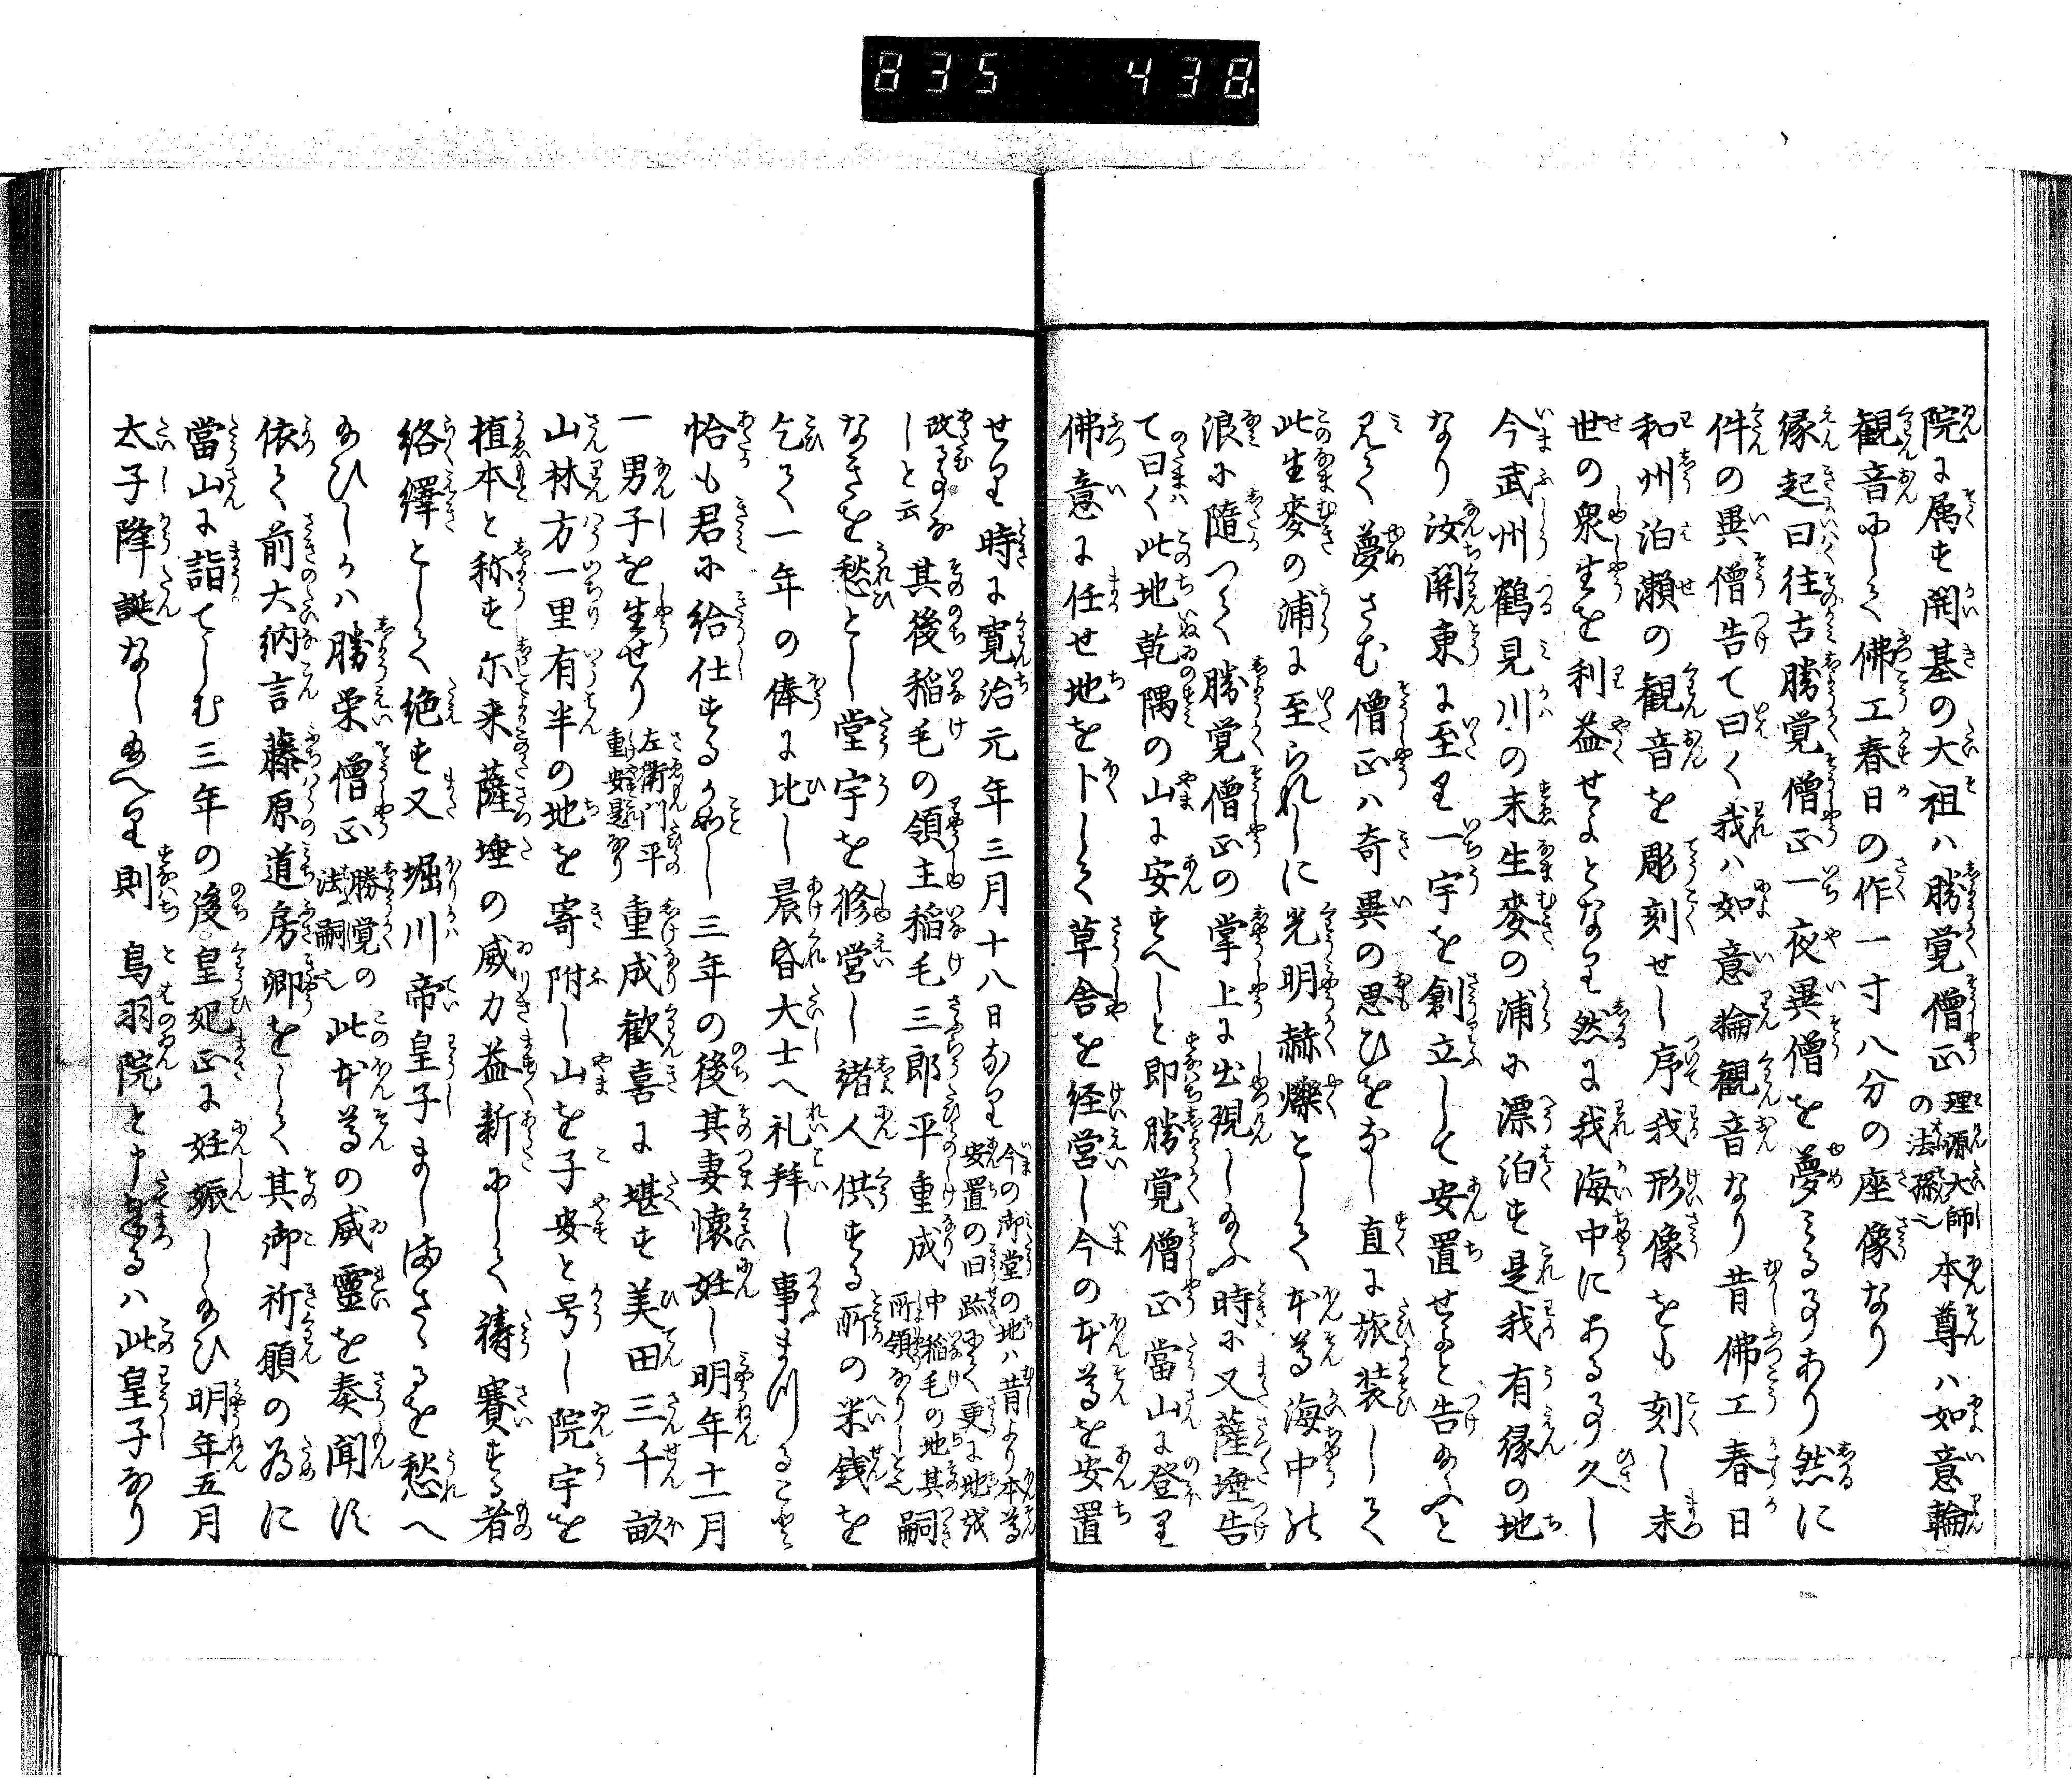 835 438
院に属す開基の大祖ハ勝覚僧正理源大師の法孫也本尊ハ如意輪
観音にして佛工春日の作一寸八分の座像なり
縁起曰往古勝覚僧正一夜異僧を夢みる事あり然に
件の異僧告て曰く我ハ如意輪観音なり昔佛工春日
和州泊瀬の観音を彫刻せし序我形像をも刻し末
世の衆生を利益せよとなり然に我海中にある事久し
今武州鶴見川の末生麦の浦に漂泊す是我有縁の地
なり汝関東に至り一宇を創立して安置せよと告給ふと
見て夢さむ僧正ハ奇異の思ひをなし直に旅装して
此生麦の浦に至られしに光明赫爍として本尊海中の
浪に随つて勝覚僧正の掌上に出現し給ふ時に又薩埵告
て曰く此地乾隅の山に安すへしと即勝覚僧正當山に登り
佛意に任せ地を卜して草舎を経営し今の本尊を安置
せり時に寛治元年三月十八日なり今の御堂の地ハ昔より本尊安置の旧跡にて更に地を
改る事なしと云其後稲毛の領主稲毛三郎平重成中稲毛の地其所領なりしと云嗣
なきを愁とし堂宇を修営し諸人供する所の米銭を
乞て一年の俸に比し晨昏大士へ礼拜し事まつること
恰も君に給仕するか如し三年の後其妻懐妊し明年十一月
一男子を生せり左衛門平重安是なり重成歓喜に堪す美田三千畝
山林方一里有半の地を寄附し山を子安と号し院宇を
植本と称す尓来薩埵の威力益新にして祷賽する者
絡繹として絶す又堀川帝皇子ましまさゝるを愁へ
給ひしかハ勝栄僧正勝覚の法嗣也此本尊の威霊を奏聞に
依て前大納言藤原道房卿をして其御祈願の為に
當山に詣てしむ三年の後皇妃正に妊娠し給ひ明年五月
太子降誕なし給へり則鳥羽院と申奉るハ此皇子なり